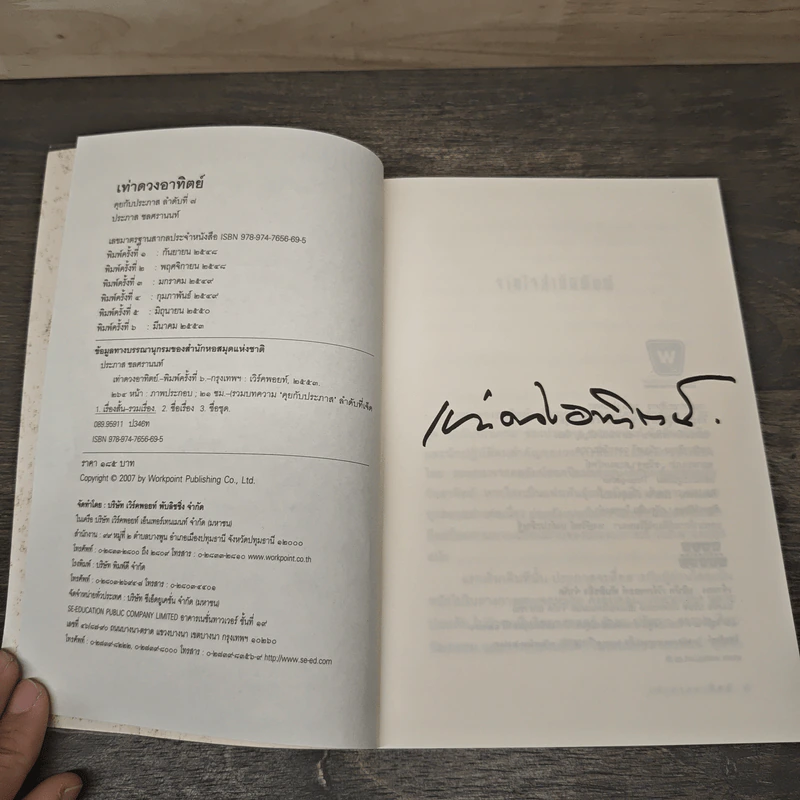 เท่าดวงอาทิตย์
คุยกับประภาส ลำดับที่ ๗
ประภาส ชลศรานนท์
เลขมาตรฐานสากลประจำหนังสือ ISBN 978-974-7656-69-5
พิมพ์ครั้งที่ ๑ : กันยายน ๒๕๔๘
พิมพ์ครั้งที่ ๒ : พฤศจิกายน ๒๕๔๘
พิมพ์ครั้งที่ ๓ : มกราคม ๒๕๔๙
พิมพ์ครั้งที่ ๔ : กุมภาพันธ์ ๒๕๔๙
พิมพ์ครั้งที่ ๕ : มิถุนายน ๒๕๕๐
พิมพ์ครั้งที่ ๖ : มีนาคม ๒๕๕๓
ข้อมูลทางบรรณานุกรมของสำนักหอสมุดแห่งชาติ
ประภาส ชลศรานนท์
เท่าดวงอาทิตย์.-พิมพ์ครั้งที่ ๖.-กรุงเทพฯ : เวิร์คพอยท์, ๒๕๕๓.
๒๖๔ หน้า : ภาพประกอบ ; ๒๑ ซม.-(รวมบทความ "คุยกับประภาส" ลำดับที่เจ็ด
1. เรื่องสั้น-รวมเรื่อง. 2. ชื่อเรื่อง 3. ชื่อชุด.
089.95911 ป346ท
ISBN 978-974-7656-69-5
ราคา ๑๘๕ บาท
Copyright © 2007 by Workpoint Publishing Co., Ltd.
จัดทำโดย : บริษัท เวิร์คพอยท์ พับลิชชิ่ง จำกัด
ในเครือ บริษัท เวิร์คพอยท์ เอ็นเทอร์เทนเมนท์ จำกัด (มหาชน)
สำนักงาน : ๙๙ หมู่ที่ ๒ ตำบลบางพูน อำเภอเมืองปทุมธานี จังหวัดปทุมธานี ๑๒๐๐๐
โทรศัพท์ : ๐-๒๘๓๓-๒๐๐๐ ถึง ๒๘๐๙ โทรสาร : ๐-๒๘๓๓-๒๘๑๐ www.workpoint.co.th
โรงพิมพ์ : บริษัท พิมพ์ดี จำกัด
โทรศัพท์ : ๐-๒๘๐๓-๒๖๙๔-๘ โทรสาร : ๐-๒๘๐๓-๔๔๐๑
จัดจำหน่ายทั่วประเทศ : บริษัท ซีเอ็ดยูเคชั่น จำกัด (มหาชน)
SE-EDUCATION PUBLIC COMPANY LIMITED อาคารเนชั่นทาวเวอร์ ชั้นที่ ๑๙
เลขที่ ๔๖/๘๗-๙๐ ถนนบางนา-ตราด แขวงบางนา เขตบางนา กรุงเทพฯ ๑๐๒๖๐
โทรศัพท์ : ๐-๒๗๓๙-๘๒๒๒, ๐-๒๗๓๙-๘๐๐๐ โทรสาร : ๐-๒๗๓๙-๘๓๕๖-๙ http://www.se-ed.com
เท่าดวงอาทิตย์.